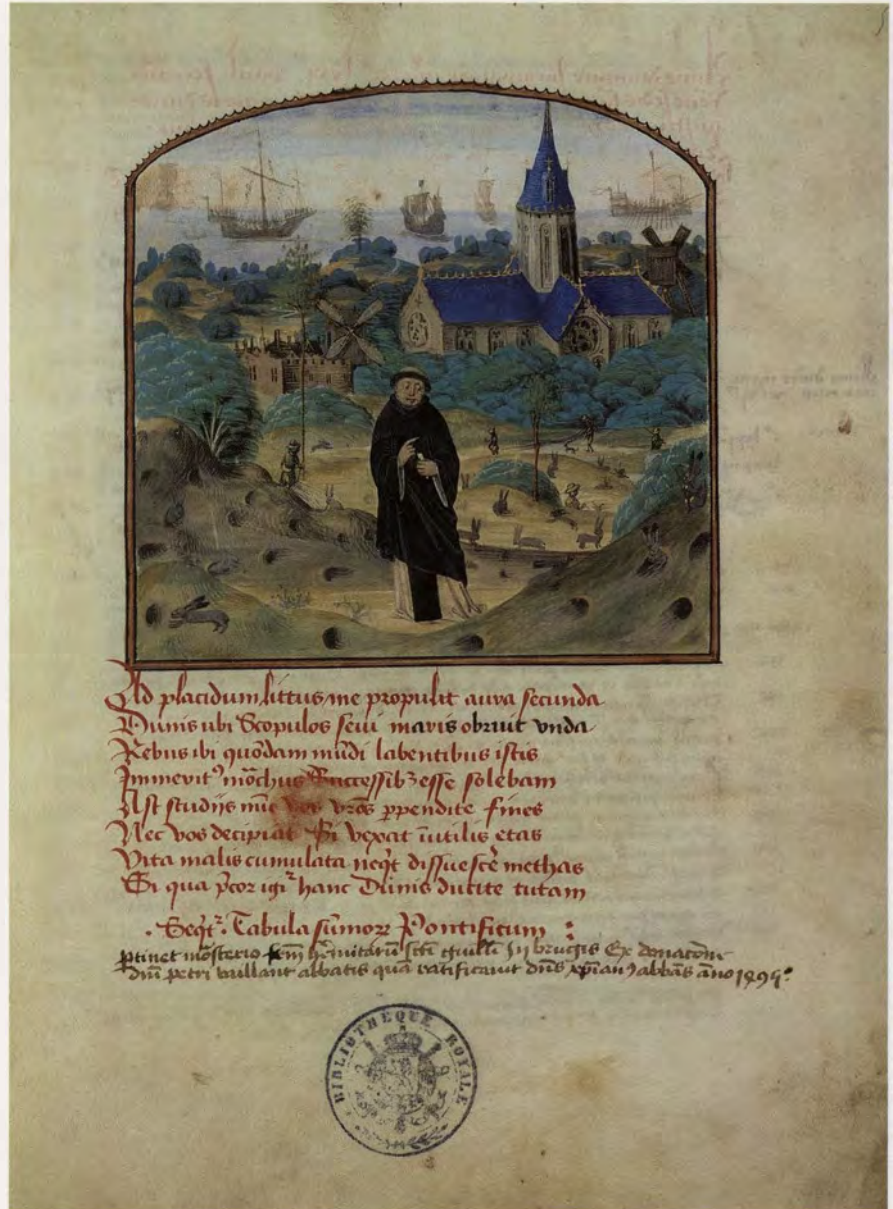 Ad placidum littus me propulit aura secunda
Dunis ubi Scopulos sevi maris obruit vnda
Rebus ibi quōdam mūdi labentibus istis
Immerit⁹ mōchus Successibꝫ esse solebam
Ast studijs nūc vos vr̄os ꝑpendite fines
Nec vos decipiat Si vexat īutilis etas
Vita malis cumulata neq̄t dissuescē methas
Si qua p̄cor igi᷑ hanc Dunis ducite tutam
. Seq̄t᷑. Tabula sūmoꝝ Pontificum :
ꝑtinet mōsterio hēmitarū scti In brugis Ex donatōne
dn̄i petri vaillant abbatis quā ratificauit dn̄s xp̄ian⁹ abbās āno 1495.
BIBLIOTHEQUE ROYALE